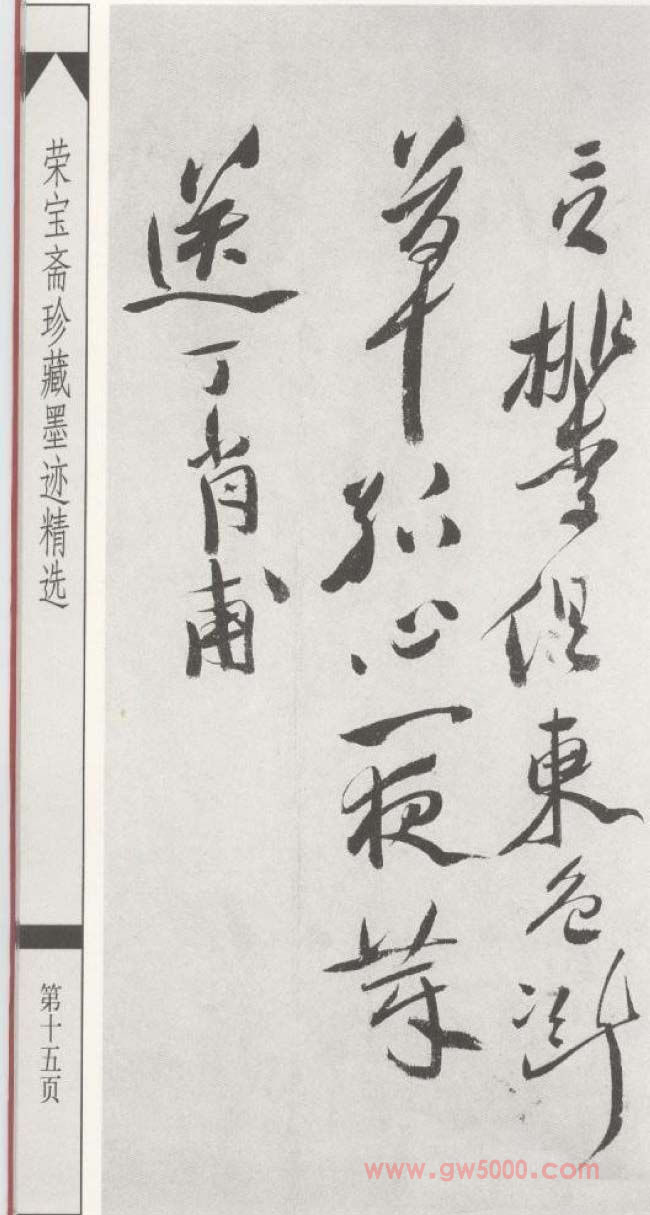 言桃李俱東色
草孤心一夜芽
送丁肖甫
荣宝斋珍藏墨迹精选
第十五页
www.gw5000.com